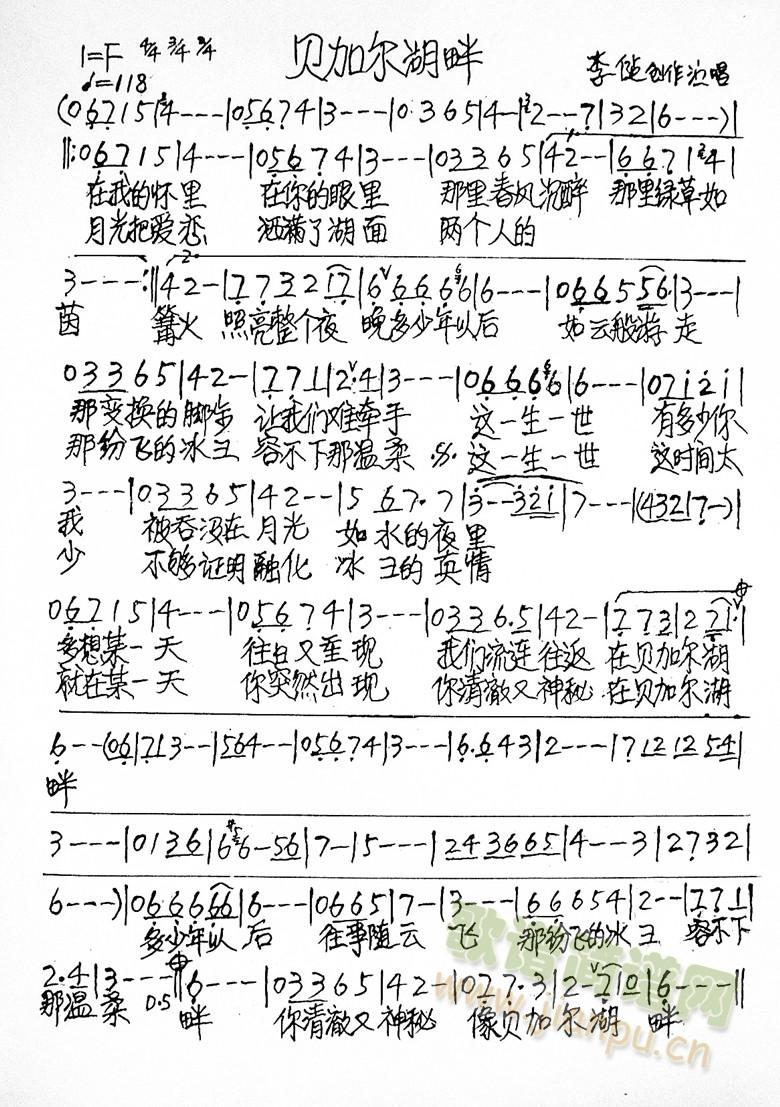 贝加尔湖畔
1=F 4/4 3/4 2/4
♩=118
李健创作演唱
(0 6 7 1 5 | 4 - - - | 0 5 6 7 4 | 3 - - - | 0 3 6 5 | 4 - | 2 - - 7 | 3 2 | 6 - - - ) |
||: 0 6 7 1 5 | 4 - - - | 0 5 6 7 4 | 3 - - - | 0 3 3 6 5 | 4 2 - - | 6 6 7 | 2 4 |
在我的怀里 在你的眼里 那里春风沉醉 那里绿草如
月光把爱恋 洒满了湖面 两个人的
3 - - - :|| 4 2 - | 7 7 3 2 1 7 | 6 6 6 6 6 | 6 - - - | 0 6 6 5 5 6 | 3 - - - |
茵 篝火 照亮整个夜 晚多少年以后 如云般游走
0 3 3 6 5 | 4 2 - | 7 7 1 | 2 · 4 | 3 - - - | 0 6 6 6 6 | 6 - - - | 0 7 1 2 1 |
那变换的脚步 让我们难牵手 这一生一世 有多少你
那纷飞的冰玉 容不下那温柔 这一生一世 这时间太
3 - - - | 0 3 3 6 5 | 4 2 - - | 5 6 7 · 7 | 3 - - 3 2 1 | 7 - - - | (4 3 2 | 7 - ) |
我 被吞没在月光 如水的夜里
少 不够证明融化 冰玉的真情
0 6 7 1 5 | 4 - - - | 0 5 6 7 4 | 3 - - - | 0 3 3 6 · 5 | 4 2 - | 7 7 3 | 2 7 1 · |
多想某一天 往日又重现 我们流连往返 在贝加尔湖
就在某一天 你突然出现 你清澈又神秘 在贝加尔湖
6 - - (0 6 | 7 1 3 - - | 5 6 4 - - | 0 5 6 7 4 | 3 - - - | 6 · 6 4 3 | 2 - - - | 7 1 2 1 2 5 4 |
畔
3 - - - | 0 1 3 6 | 6 6 - 5 6 | 7 - | 5 - - - | 2 4 3 6 6 5 | 4 - - 3 | 2 7 3 2 |
6 - - - ) | 0 6 6 6 6 6 | 6 - - - | 0 6 6 5 | 7 - | 3 - - - | 6 6 6 5 4 | 2 - - | 7 7 1 |
多少年以后 往事随云飞 那纷飞的冰玉 容不下
2 · 4 | 3 - - - - || 6 - - - | 0 3 3 6 5 | 4 2 - | 0 7 7 · 3 | 2 - 7 1 0 | 6 - - - ||
那温柔 D.S 畔 你清澈又神秘 像贝加尔湖畔
歌谱简谱网
www.jianpu.cn